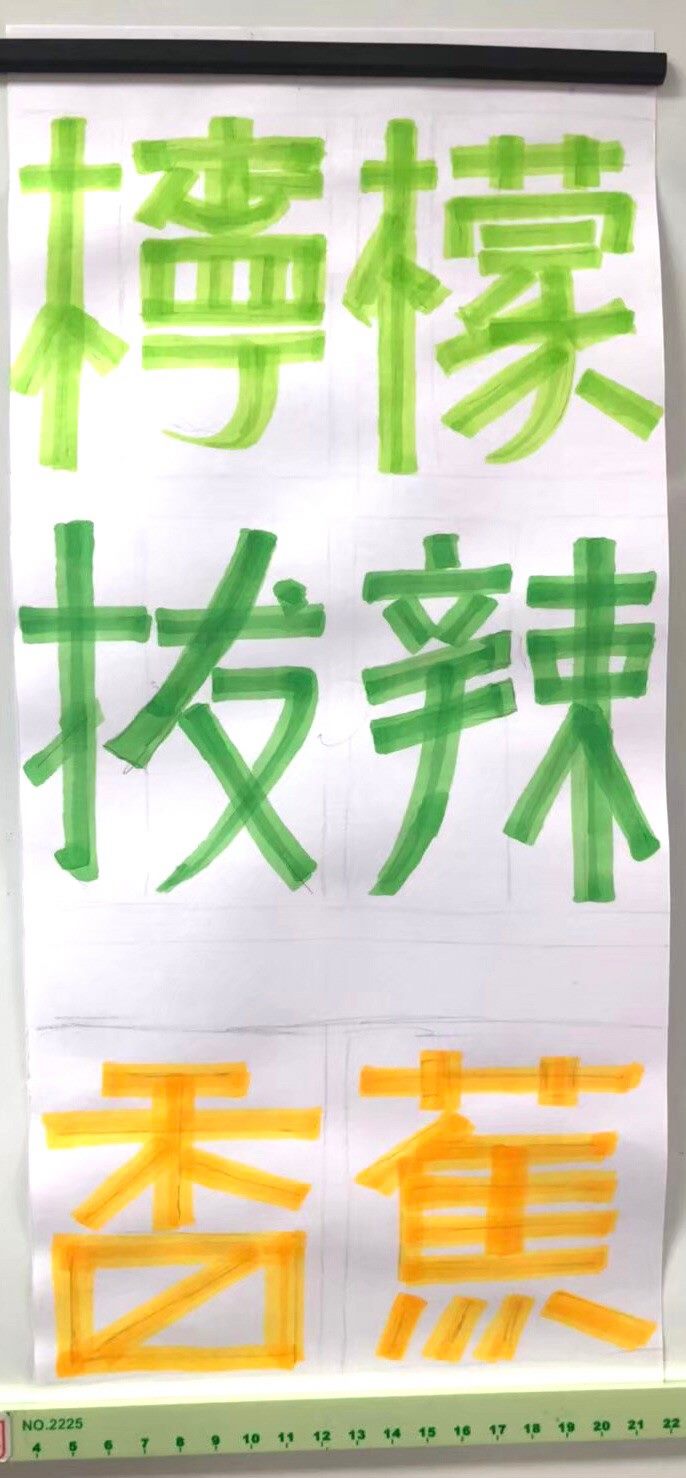 檸檬
拔辣
香蕉
NO.2225
4 5 6 7 8 9 10 11 12 13 14 15 16 17 18 19 20 21 22